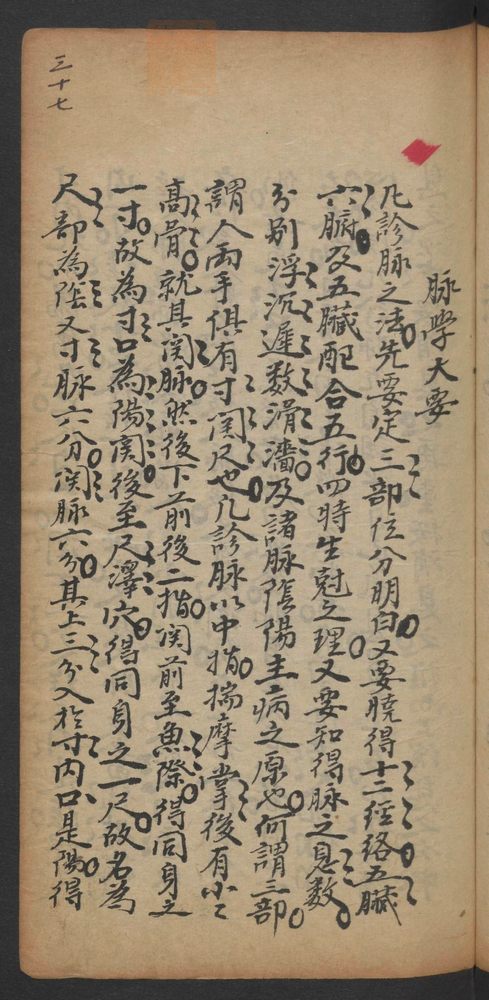 三十七
脉學大要
凡診脉之法先要定三部位分明白又要曉得十二经络五臟
六腑及五臟配合五行四時生尅之理又要知得脉之息数
分别浮沉遲数滑濇及諸脉陰陽主病之原也何謂三部
謂人両手俱有寸関尺也凡診脉以中指揣摩掌後有小々
高骨就其関脉然後下前後二指関前至魚際得同身之
一寸故為寸口為陽関後至尺澤穴得同身之一尺故名為
尺部為陰又寸脉六分関脉六分其上三分入於寸内口是陽得